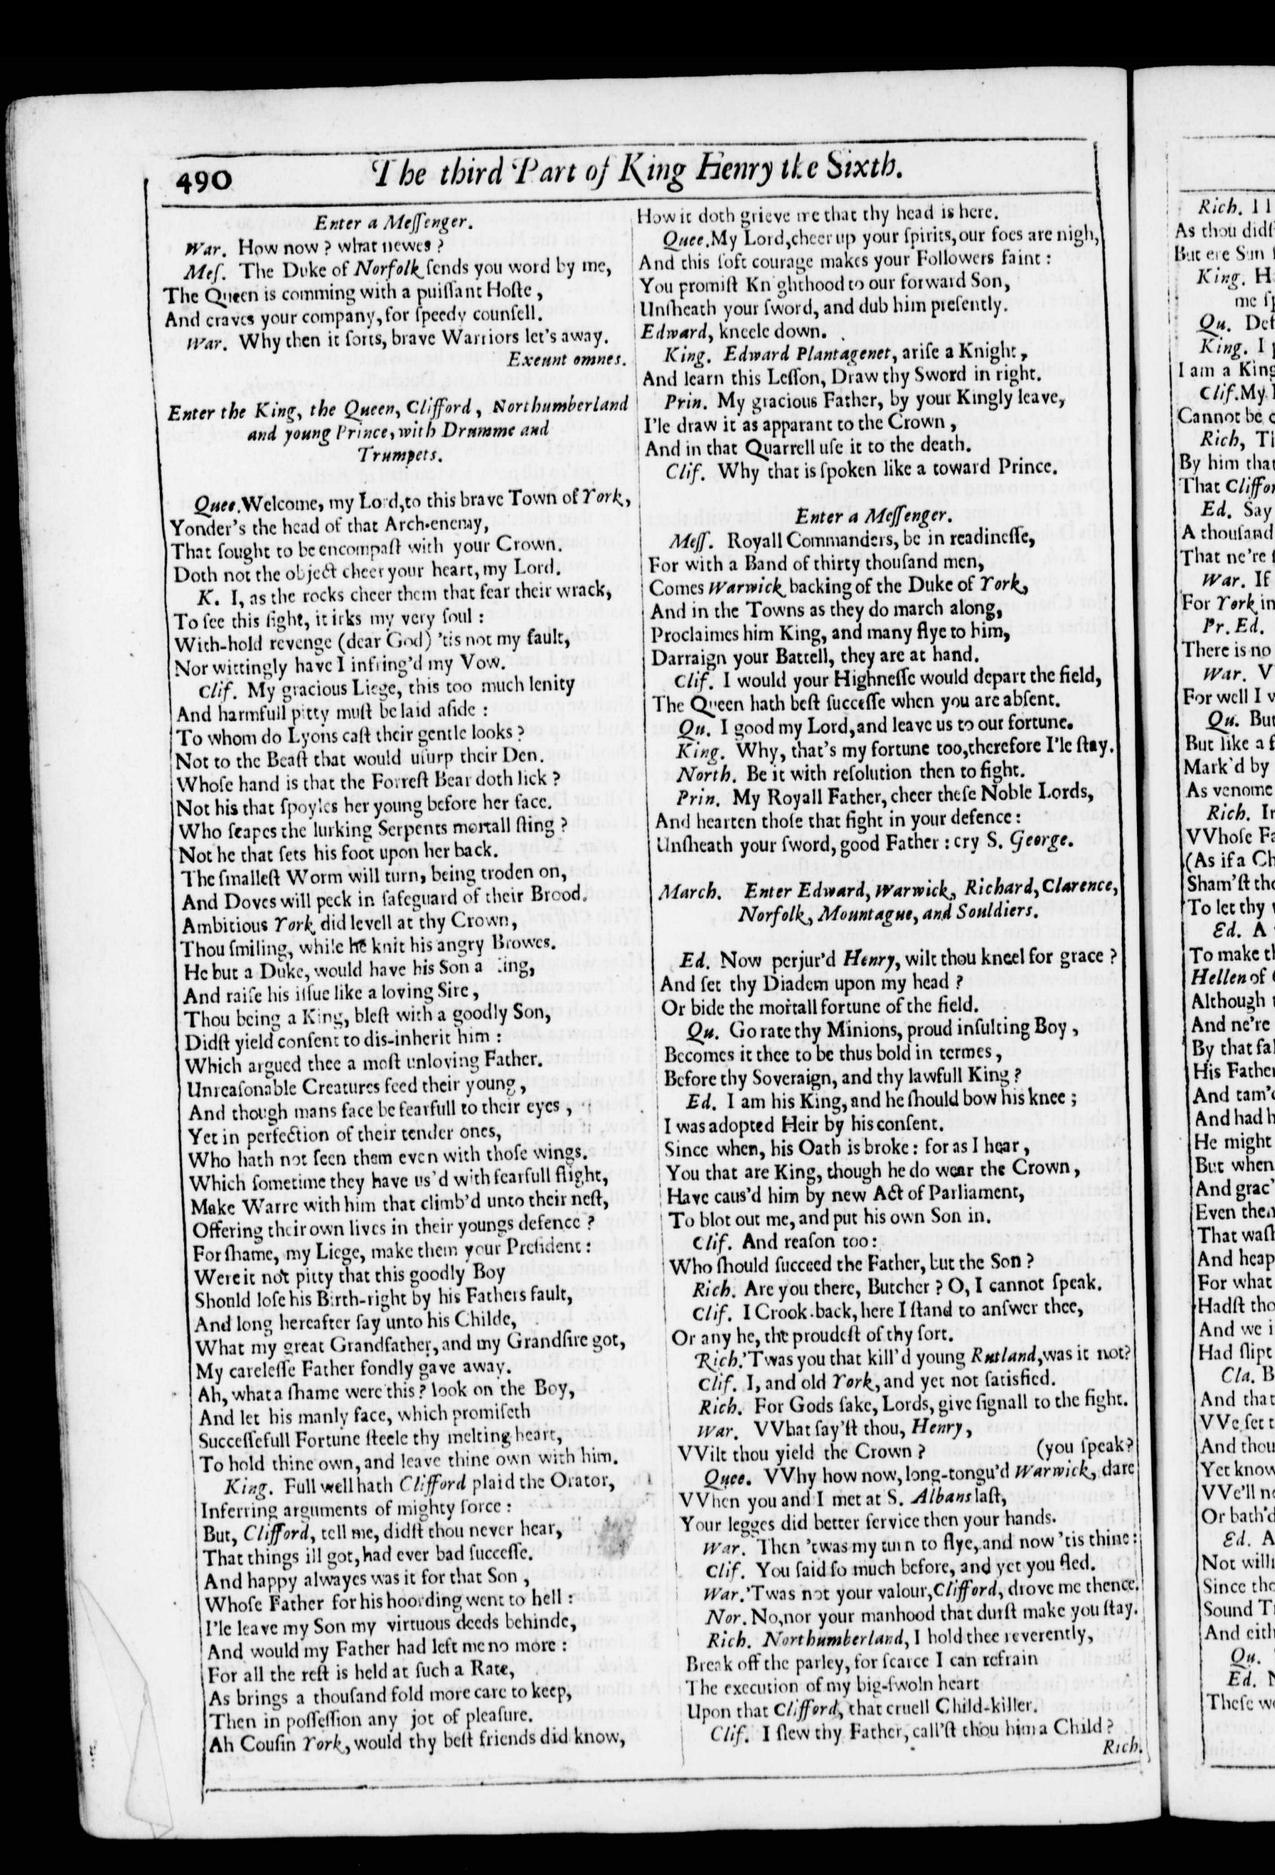 490
The third Part of King Henry the Sixth.
Enter a Meſſenger.
War. How now ? what newes ?
Meſ. The Duke of Norfolk ſends you word by me,
The Queen is comming with a puiſſant Hoſte ,
And craves your company, for ſpeedy counſell.
War. Why then it ſorts, brave Warriors let's away.
Exeunt omnes.
Enter the King, the Queen, Clifford , Northumberland
and young Prince, with Drumme and
Trumpets.
Quee. Welcome, my Lord, to this brave Town of York,
Yonder's the head of that Arch-enemy,
That ſought to be encompaſt with your Crown.
Doth not the object cheer your heart, my Lord.
K. I, as the rocks cheer them that fear their wrack,
To ſee this ſight, it irks my very ſoul :
With-hold revenge (dear God) 'tis not my fault,
Nor wittingly have I infring'd my Vow.
Clif. My gracious Liege, this too much lenity
And harmfull pitty muſt be laid aſide :
To whom do Lyons caſt their gentle looks ?
Not to the Beaſt that would uſurp their Den.
Whoſe hand is that the Forreſt Bear doth lick ?
Not his that ſpoyles her young before her face.
Who ſcapes the lurking Serpents mortall ſting ?
Not he that ſets his foot upon her back.
The ſmalleſt Worm will turn, being troden on,
And Doves will peck in ſafeguard of their Brood.
Ambitious York did levell at thy Crown,
Thou ſmiling, while he knit his angry Browes.
He but a Duke, would have his Son a .ing,
And raiſe his iſſue like a loving Sire ,
Thou being a King, bleſt with a goodly Son,
Didſt yield conſent to dis-inherit him :
Which argued thee a moſt unloving Father.
Unreaſonable Creatures feed their young ,
And though mans face be fearfull to their eyes ,
Yet in perfection of their tender ones,
Who hath not ſeen them even with thoſe wings.
Which ſometime they have us'd with fearfull flight,
Make Warre with him that climb'd unto their neſt,
Offering their own lives in their youngs defence ?
For ſhame, my Liege, make them your Preſident :
Were it not pitty that this goodly Boy
Should loſe his Birth-right by his Fathers fault,
And long hereafter ſay unto his Childe,
What my great Grandfather, and my Grandſire got,
My careleſſe Father fondly gave away.
Ah, what a ſhame were this ? look on the Boy,
And let his manly face, which promiſeth
Succeſſefull Fortune ſteele thy melting heart,
To hold thine own, and leave thine own with him.
King. Full well hath Clifford plaid the Orator,
Inferring arguments of mighty force :
But, Clifford, tell me, didſt thou never hear,
That things ill got, had ever bad ſucceſſe.
And happy alwayes was it for that Son ,
Whoſe Father for his hoording went to hell :
I'le leave my Son my virtuous deeds behinde,
And would my Father had left me no more :
For all the reſt is held at ſuch a Rate,
As brings a thouſand fold more care to keep,
Then in poſſeſſion any jot of pleaſure.
Ah Couſin York, would thy beſt friends did know,
How it doth grieve me that thy head is here.
Quee. My Lord, cheer up your ſpirits, our foes are nigh,
And this ſoft courage makes your Followers faint :
You promiſt Kn ghthood to our forward Son,
Unſheath your ſword, and dub him preſently.
Edward, kneele down.
King. Edward Plantagenet, ariſe a Knight ,
And learn this Leſſon, Draw thy Sword in right.
Prin. My gracious Father, by your Kingly leave,
I'le draw it as apparant to the Crown ,
And in that Quarrell uſe it to the death.
Clif. Why that is ſpoken like a toward Prince.
Enter a Meſſenger.
Meſſ. Royall Commanders, be in readineſſe,
For with a Band of thirty thouſand men,
Comes Warwick backing of the Duke of York,
And in the Towns as they do march along,
Proclaimes him King, and many flye to him,
Darraign your Battell, they are at hand.
Clif. I would your Highneſſe would depart the field,
The Queen hath beſt ſucceſſe when you are abſent.
Qu. I good my Lord, and leave us to our fortune.
King. Why, that's my fortune too, therefore I'le ſtay.
North. Be it with reſolution then to fight.
Prin. My Royall Father, cheer theſe Noble Lords,
And hearten thoſe that fight in your defence :
Unſheath your ſword, good Father : cry S. George.
March. Enter Edward, Warwick, Richard, Clarence,
Norfolk, Mountague, and Souldiers.
Ed. Now perjur'd Henry, wilt thou kneel for grace ?
And ſet thy Diadem upon my head ?
Or bide the mortall fortune of the field.
Qu. Go rate thy Minions, proud inſulting Boy ,
Becomes it thee to be thus bold in termes ,
Before thy Soveraign, and thy lawfull King ?
Ed. I am his King, and he ſhould bow his knee ;
I was adopted Heir by his conſent.
Since when, his Oath is broke : for as I hear,
You that are King, though he do wear the Crown ,
Have caus'd him by new Act of Parliament,
To blot out me, and put his own Son in.
Clif. And reaſon too :
Who ſhould ſucceed the Father, but the Son ?
Rich. Are you there, Butcher ? O, I cannot ſpeak.
Clif. I Crook-back, here I ſtand to anſwer thee,
Or any he, the proudeſt of thy ſort.
Rich. 'Twas you that kill'd young Rutland, was it not?
Clif. I, and old York, and yet not ſatisfied.
Rich. For Gods ſake, Lords, give ſignall to the fight.
War. VVhat ſay'ſt thou, Henry,
VVilt thou yield the Crown ? (you ſpeak?
Quee. VVhy how now, long-tongu'd Warwick, dare
VVhen you and I met at S. Albans laſt,
Your legges did better ſervice then your hands.
War. Then 'twas my turn to flye, and now 'tis thine:
Clif. You ſaid ſo much before, and yet you fled.
War. 'Twas not your valour, Clifford, drove me thence.
Nor. No, nor your manhood that durſt make you ſtay.
Rich. Northumberland, I hold thee reverently,
Break off the parley, for ſcarce I can refrain
The execution of my big-ſwoln heart
Upon that Clifford, that cruell Child-killer.
Clif. I ſlew thy Father, call'ſt thou him a Child ?
Rich.
Rich.
As thou didſ
But ere Sun
King. H
me ſp
Qu. Def
King. I p
I am a King
Clif. My
Cannot be c
Rich, Ti
By him that
That Cliffor
Ed. Say
A thouſand
That ne're
War. If
For York in
Pr. Ed.
There is no
War. V
For well I w
Qu. But
But like a f
Mark'd by
As venome
Rich. Ir
VVhoſe Fa
(As if a Ch
Sham'ſt tho
To let thy
Ed. A
To make th
Hellen of
Although
And ne're
By that fal
His Father
And tam'd
And had h
He might
But when
And grac'
Even then
That waſh
And heap
For what
Hadſt tho
And we i
Had ſlipt
Cla. B
And that
VVe ſet t
And thou
Yet know
VVe'll ne
Or bath'd
Ed. A
Not willi
Since tho
Sound T
And eith
Qu.
Ed. N
Theſe wo